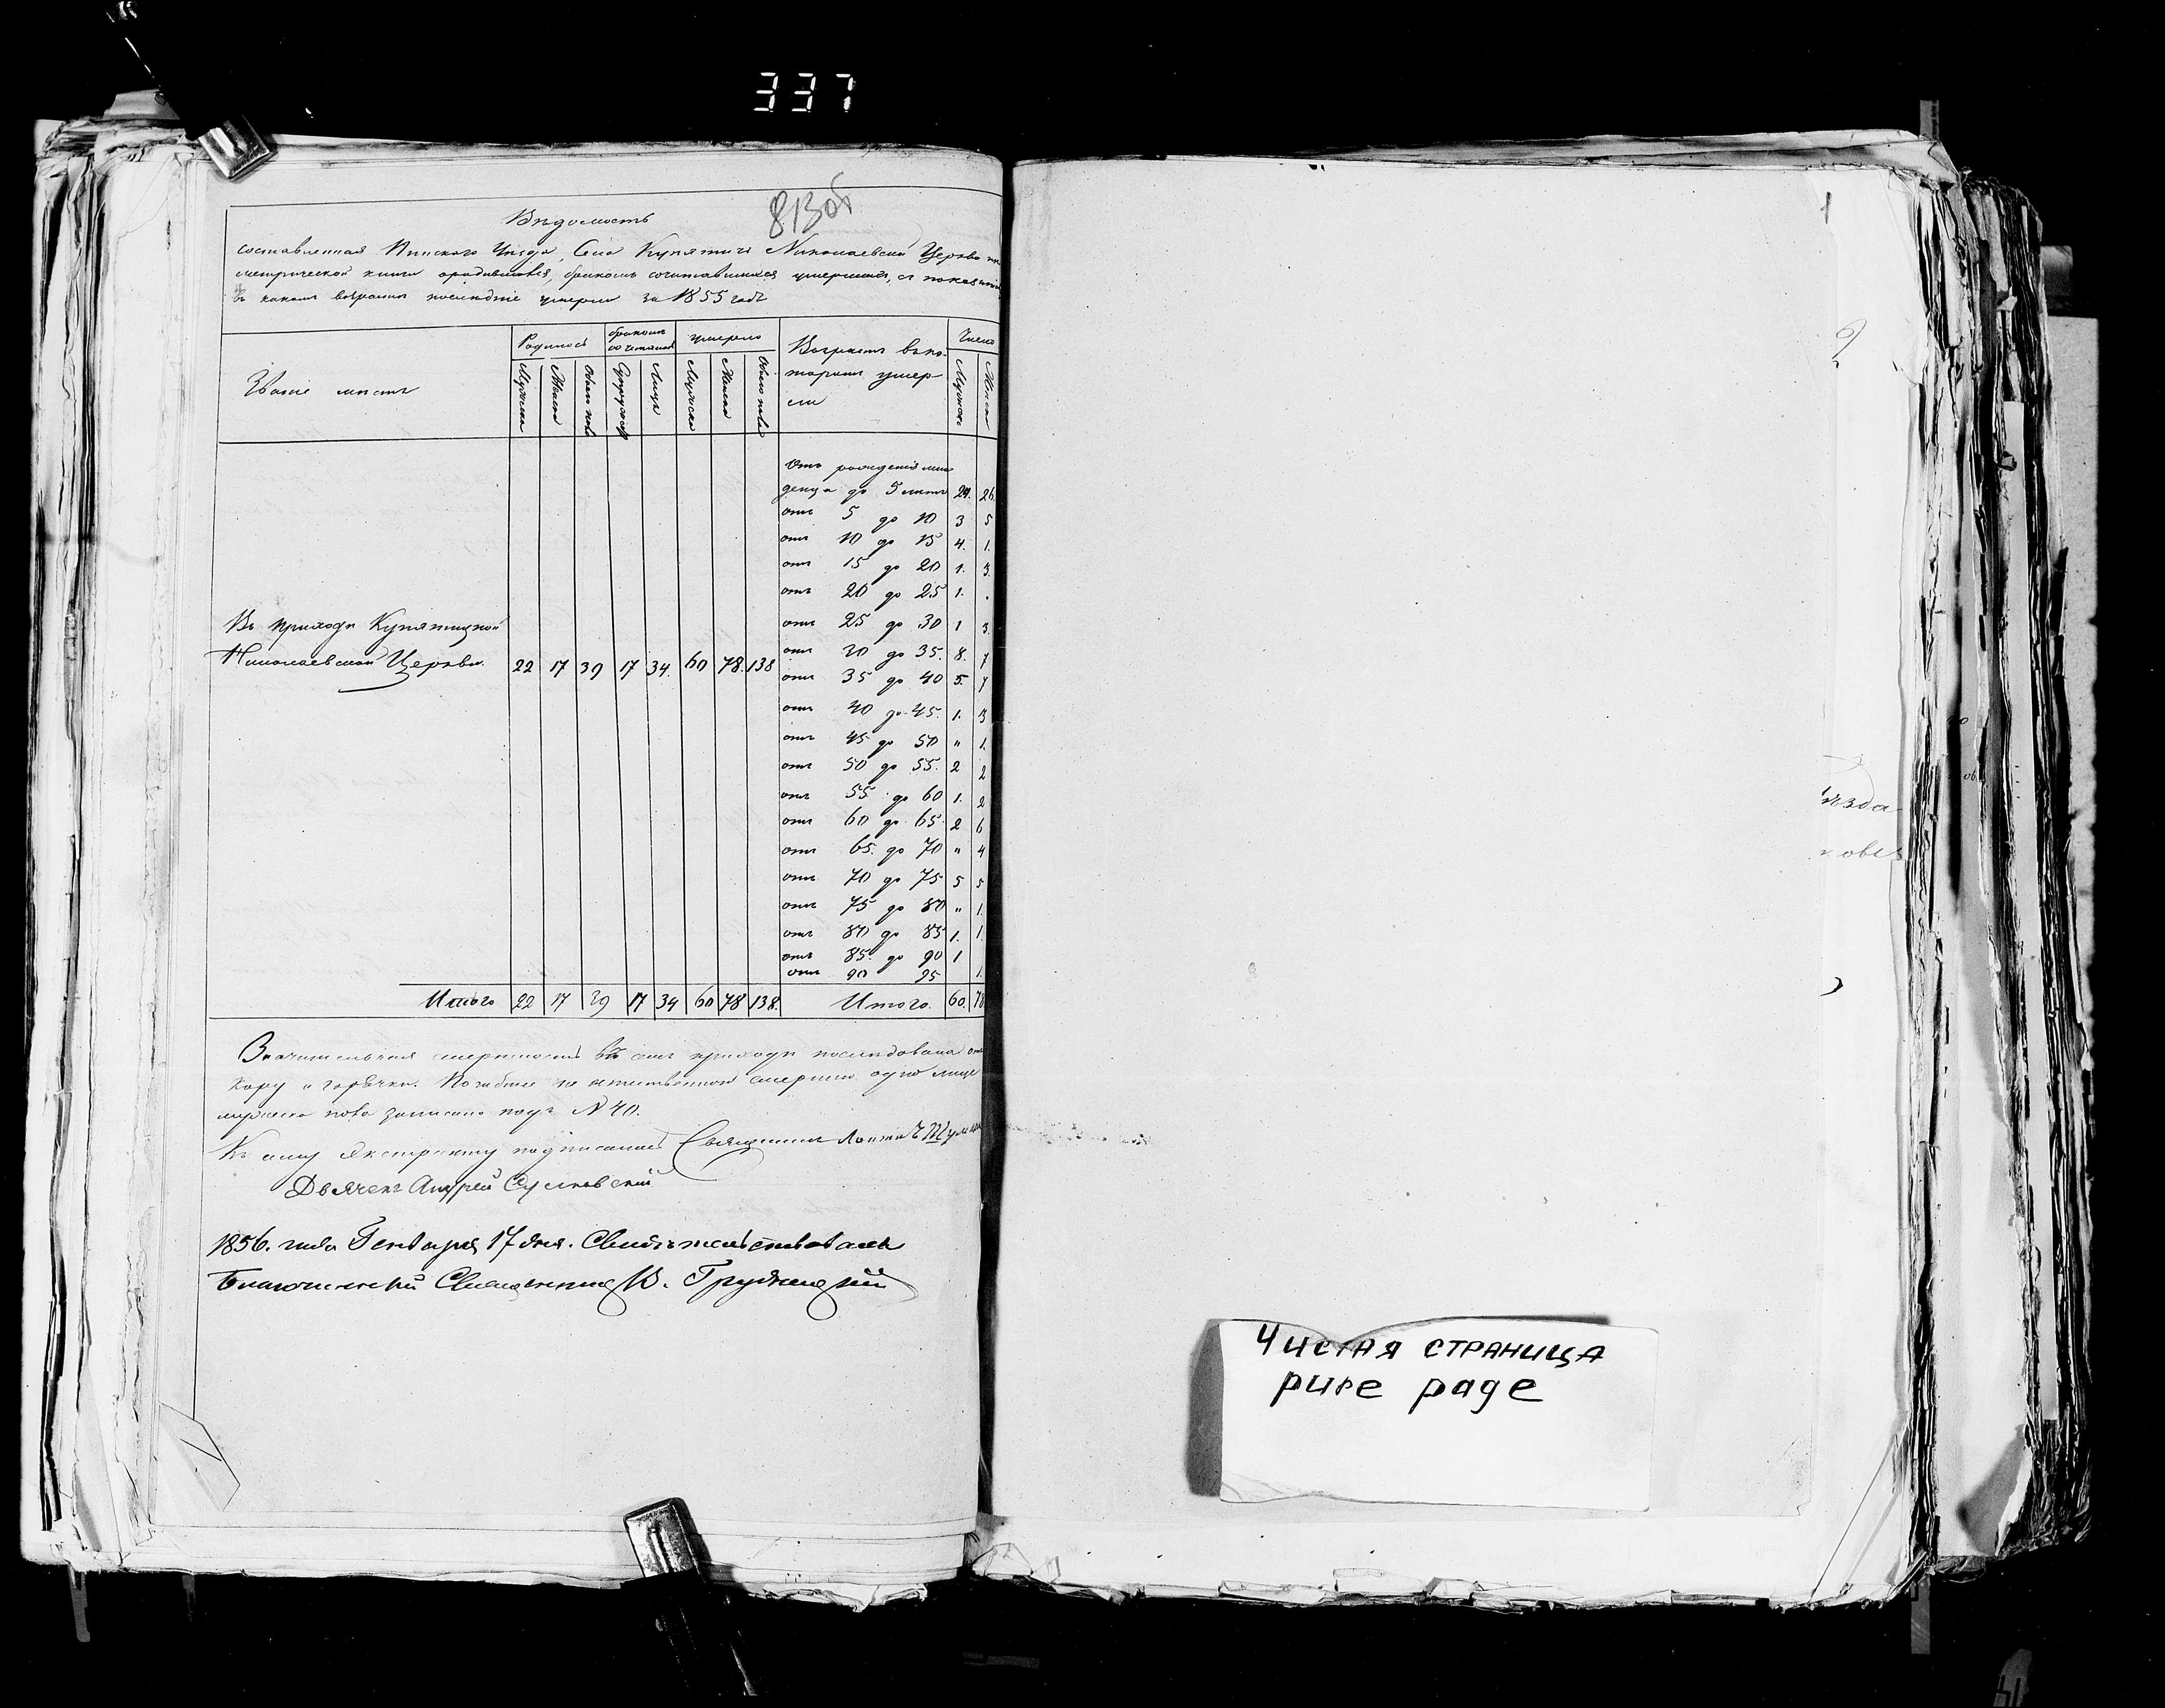 337
813об
Вѣдомость
составленная Пинскаго Уѣзда, Села Купятичъ Николаевской Церкви
метрической книги о родившихся, бракомъ сочитавшихся умершихъ, съ показаніем
въ какомъ возрастѣ последніе умерли за 1855 годъ
Званіе мѣстъ
Родилось
бракомъ сочиталось
умерло
Возрастъ въ ко-
торомъ умер-
ли
Число
Мужеска
Женска
Обоего пола
Супружествъ
Лица
Мужеска
Женска
Обоего пола
Мужска
Женска
Отъ рожденія мла
денца до 5 летъ 24. 26.
отъ 5 до 10 3 5
отъ 10 до 15 4. 1.
отъ 15 до 20 1. 3.
отъ 20 до 25 1. .
Въ приходѣ Купятицкой
отъ 25 до 30 1 3.
Николаевской Церкви. 22 17 39 17 34. 60 78. 138
отъ 30 до 35. 8. 7
отъ 35 до 40 5. 7
отъ 40 до 45. 1. 3
отъ 45 до 50 " 1.
отъ 50 до 55. 2 2
отъ 55 до 60 1. 2
отъ 60 до 65. 2 6
отъ 65. до 70 " 4
отъ 70 до 75 5 5
отъ 75 до 80 " 1.
отъ 80 до 85 1. 1.
отъ 85. до 90 1
отъ 90 95 1.
Итого 22 17 39 17 34 60 78 138. Итого. 60. 78
Значительная смертность въ семъ приходѣ последовала отъ
кору и горячки. Погибше не естественной смертию одно лице
мужеска пола записано подъ N 40.
Къ сему Экстракту подписались Священникъ
Дьячекъ Андрей
1856. года Генваря 17 дня. Свидѣтельствовалъ
Благочинный Священникъ В. Грудницкій
ѣзда
Чистая страница
pure page